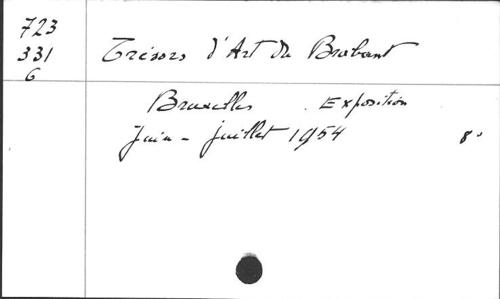 723
331
6
Trésors d'Art du Brabant
Bruxelles . Exposition
Juin - juillet 1954 8°